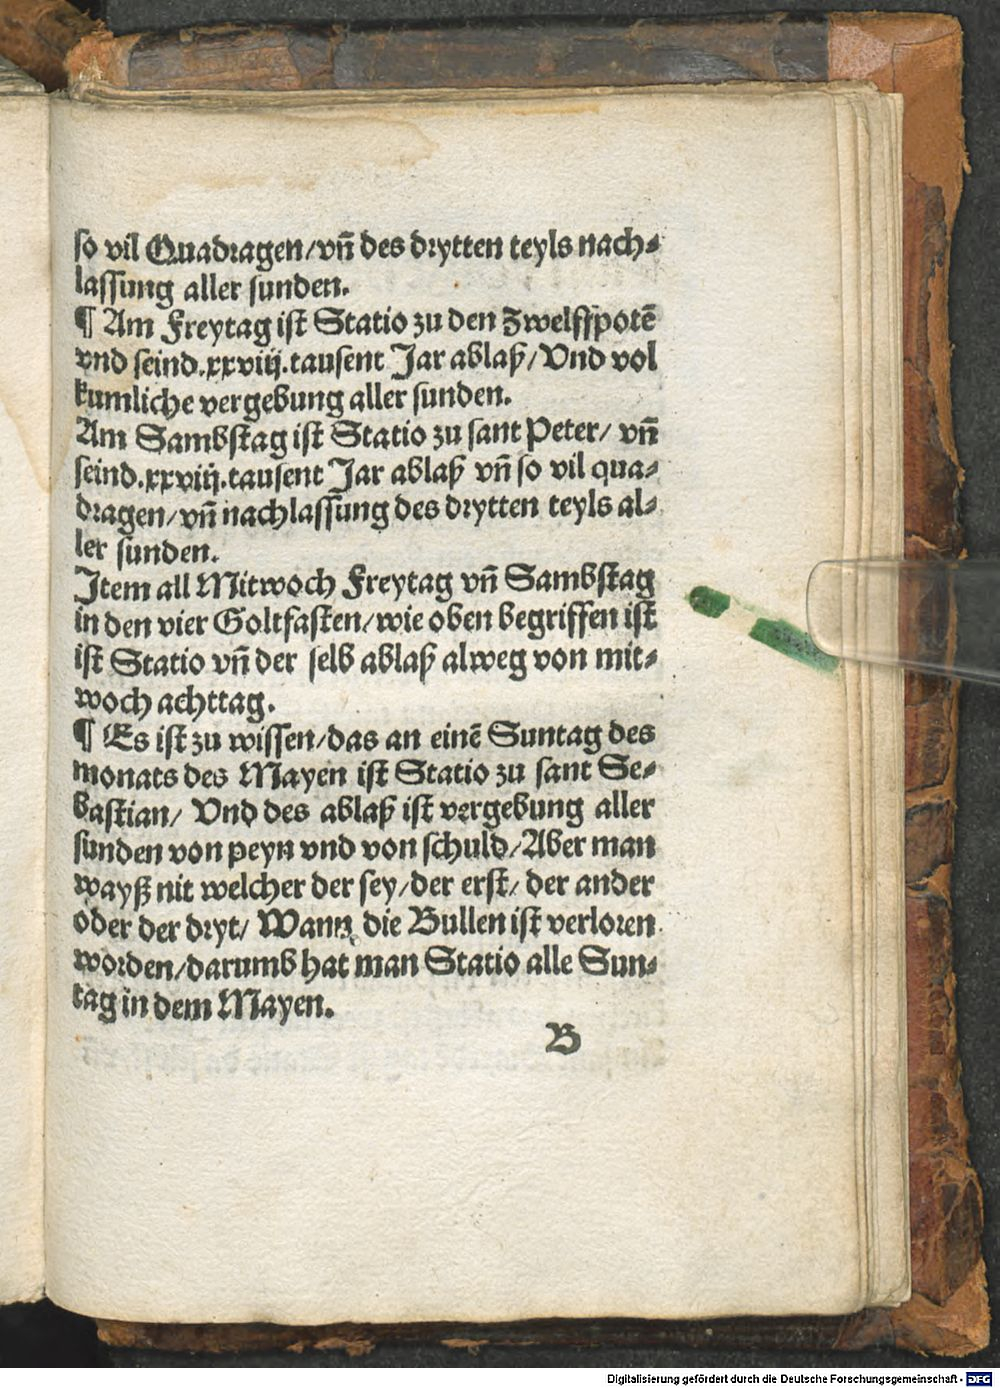 so vil Quadragen/vn̄ des drytten teyls nach-
lassung aller sunden.
¶ Am Freytag ist Statio zu den Zwelffpotē
vnd seind.xxviij.tausent Jar ablaß/Vnd vol
kumliche vergebung aller sunden.
Am Sambstag ist Statio zu sant Peter/ vn̄
seind.xxviij.tausent Jar ablaß vn̄ so vil qua-
dragen/vn̄ nachlassung des drytten teyls al-
ler sunden.
Item all Mitwoch Freytag vn̄ Sambstag
in den vier Goltfasten/wie oben begriffen ist
ist Statio vn̄ der selb ablaß alweg von mit-
woch achttag.
¶ Es ist zu wissen/das an einē Suntag des
monats des Mayen ist Statio zu sant Se-
bastian/ Vnd des ablaß ist vergebung aller
sunden von peyn vnd von schuld/Aber man
wayß nit welcher der sey/der erst/ der ander
oder der dryt/ Wann die Bullen ist verloren
worden/darumb hat man Statio alle Sun-
tag in dem Mayen.
B
Digitalisierung gefördert durch die Deutsche Forschungsgemeinschaft - DFG